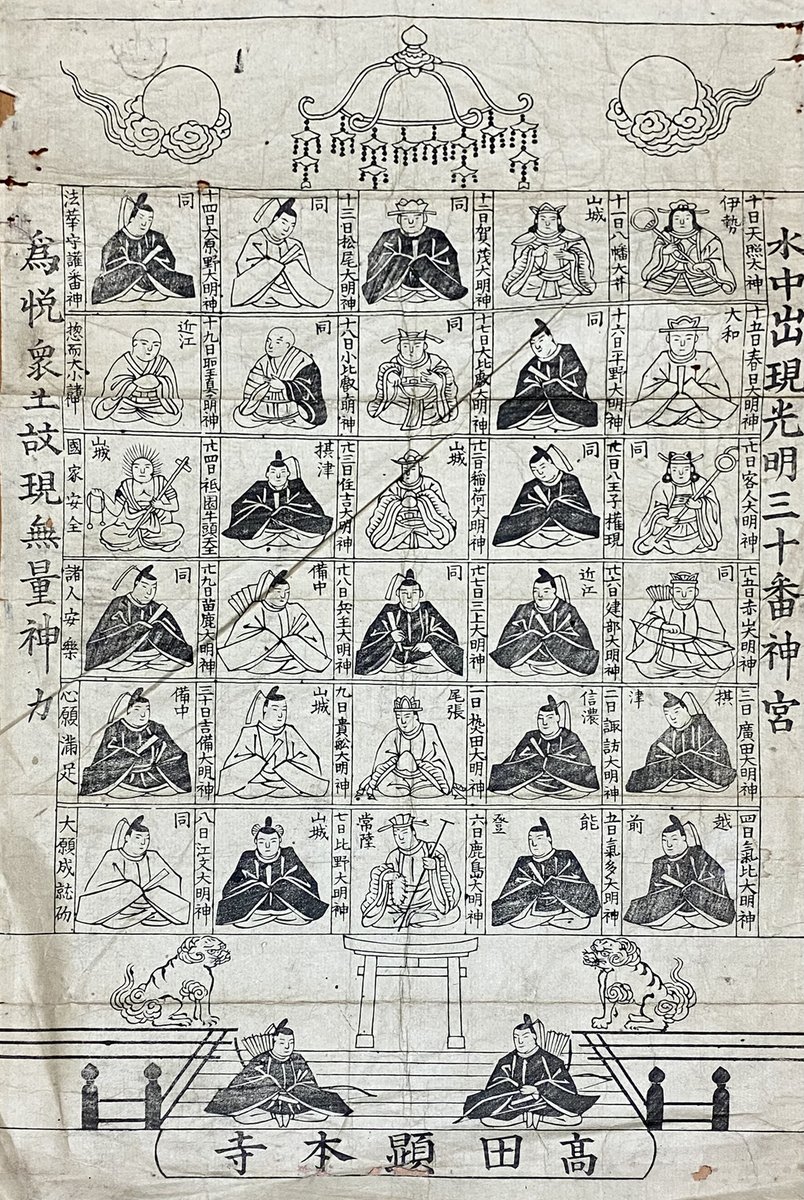 水中出現光明三十番神宮
伊勢
十日天照太神
山城
十一日八幡大井
同
十二日賀茂大明神
同
十三日松尾大明神
同
十四日大原野大明神
法華守護番神
大和
十五日春日大明神
同
十六日平野大明神
同
十七日大比叡大明神
同
十八日小比叡大明神
近江
十九日聖真大明神
惣而大小諸神
同
廿日客人大明神
同
廿一日八王子権現
山城
廿二日稲荷大明神
摂津
廿三日住吉大明神
山城
廿四日祗園牛頭天王
國家安全
同
廿五日赤山大明神
近江
廿六日建部大明神
廿七日三上大明神
備中
廿八日兵主大明神
同
廿九日苗鹿大明神
諸人安樂
津
三日廣田大明神
信濃
二日諏訪大明神
尾張
一日熱田大明神
山城
九日貴舩大明神
備中
三十日吉備大明神
心願滿足
越前
四日氣比大明神
能登
五日氣多大明神
常陸
六日鹿島大明神
山城
七日比野大明神
同
八日江文大明神
大願成就
為悦衆生故現無量神力
高田顕本寺